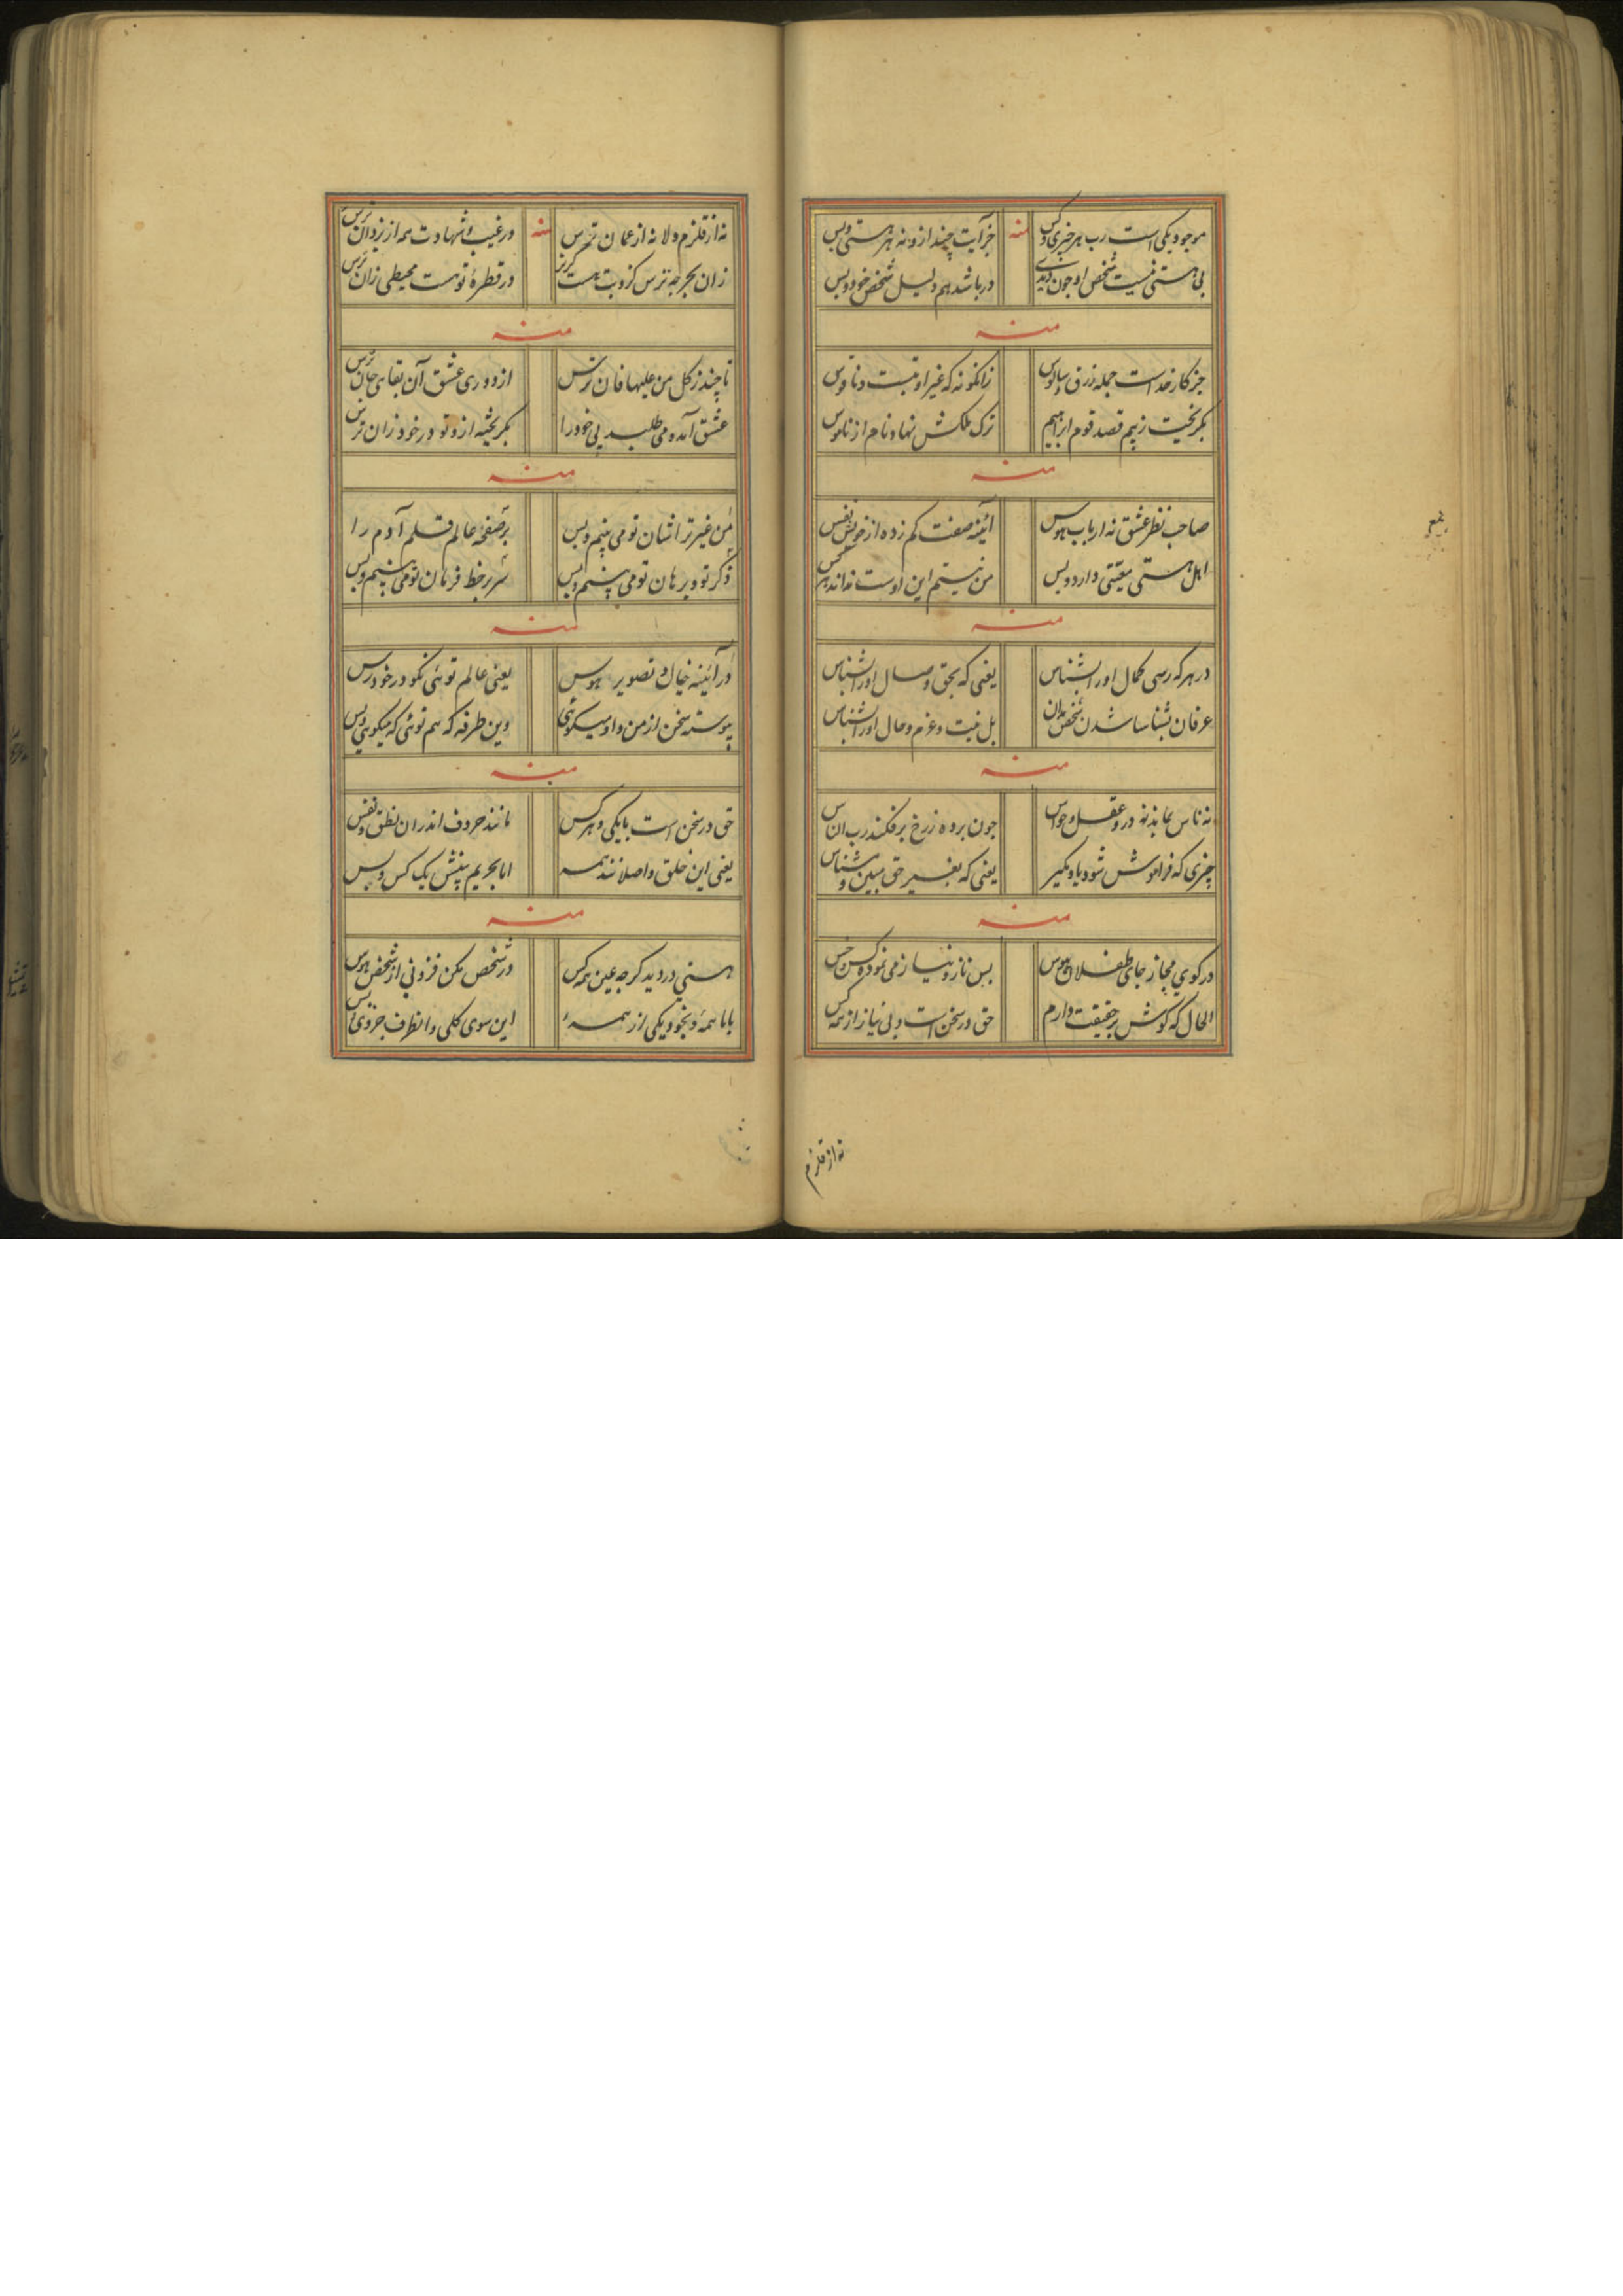 موجود یکی است رب هر چیزی و کس منه جز آیت چند ازو نه هستی و بس
بی هستی نیست شخص او چون دیدی در باشد هم دلیل شخص خود و بس
منه
جز کار خداست جمله زرق و سالوس زانگونه که غیر اوست و ناقوس
بگریخت ز بیم قصد قوم ابراهیم ترک ملکش نهاد نام از ناموس
منه
صاحب نظر عشق نه ارباب هوس آئینه صفت کم زده از خویش نفس
اهل هستی معیتی دارد و بس من نیستم این اوست
منه
در هر که رسی کمال او را بشناس یعنی که بحق وصال او را بشناس
عرفان بشناسا شدن شخص بدان بل نیت و عزم و حال او را بشناس
منه
نه ناس بماند نه درو عقل و حواس چون برده ز رخ برفکند رب الناس
چیزی که فراموش شود یاد مگیر یعنی که بغیر حق مبین و مشناس
منه
در کوی مجاز جای طفلان هوس بس ناز و نیاز می نمود کس و خس
الحال که کوش بر حقیقت دارم حق در سخن است و بی نیاز از همه کس
نه از قلزم
نه از قلزم و لا نه از عمان ترس منه در غیب و شهادت همه از یزدان ترس
زان بحر چه ترس کز وبت هست گریز در قطرهٔ تو هست محیطی زان ترس
منه
تا چند ز کل من علیها فان ترس از دوری عشق آن بقای جان ترس
عشق آمده می طلبد بی خود را بگریخته ازو تو در خود زان ترس
منه
من غیر ترا نشان تو می بینم و بس بر صفحه عالم قلم آدم را
ذکر تو و برهان تو می بینم و بس سر بر خط فرمان تو می بینم و بس
منه
در آئینه خیال و تصویر هوس یعنی عالم توئی نکو در خود رس
پیوسته سخن از من و او میکوئی وین طرفه که هم توئی که میکویی و بس
منه
حق در سخن است با یکی و هر کس مانند حروف اندران نطق و نفس
یعنی این خلق واصلانند همه اما بحریم بینش یک کس و بس
منه
هستی در دید کرچه عین همه کس در شخص مکن فزونی از شخص هوس
با ما همهٔ و بخود یکی از همهٔ این سوی کلی و انطرف جزوی بس